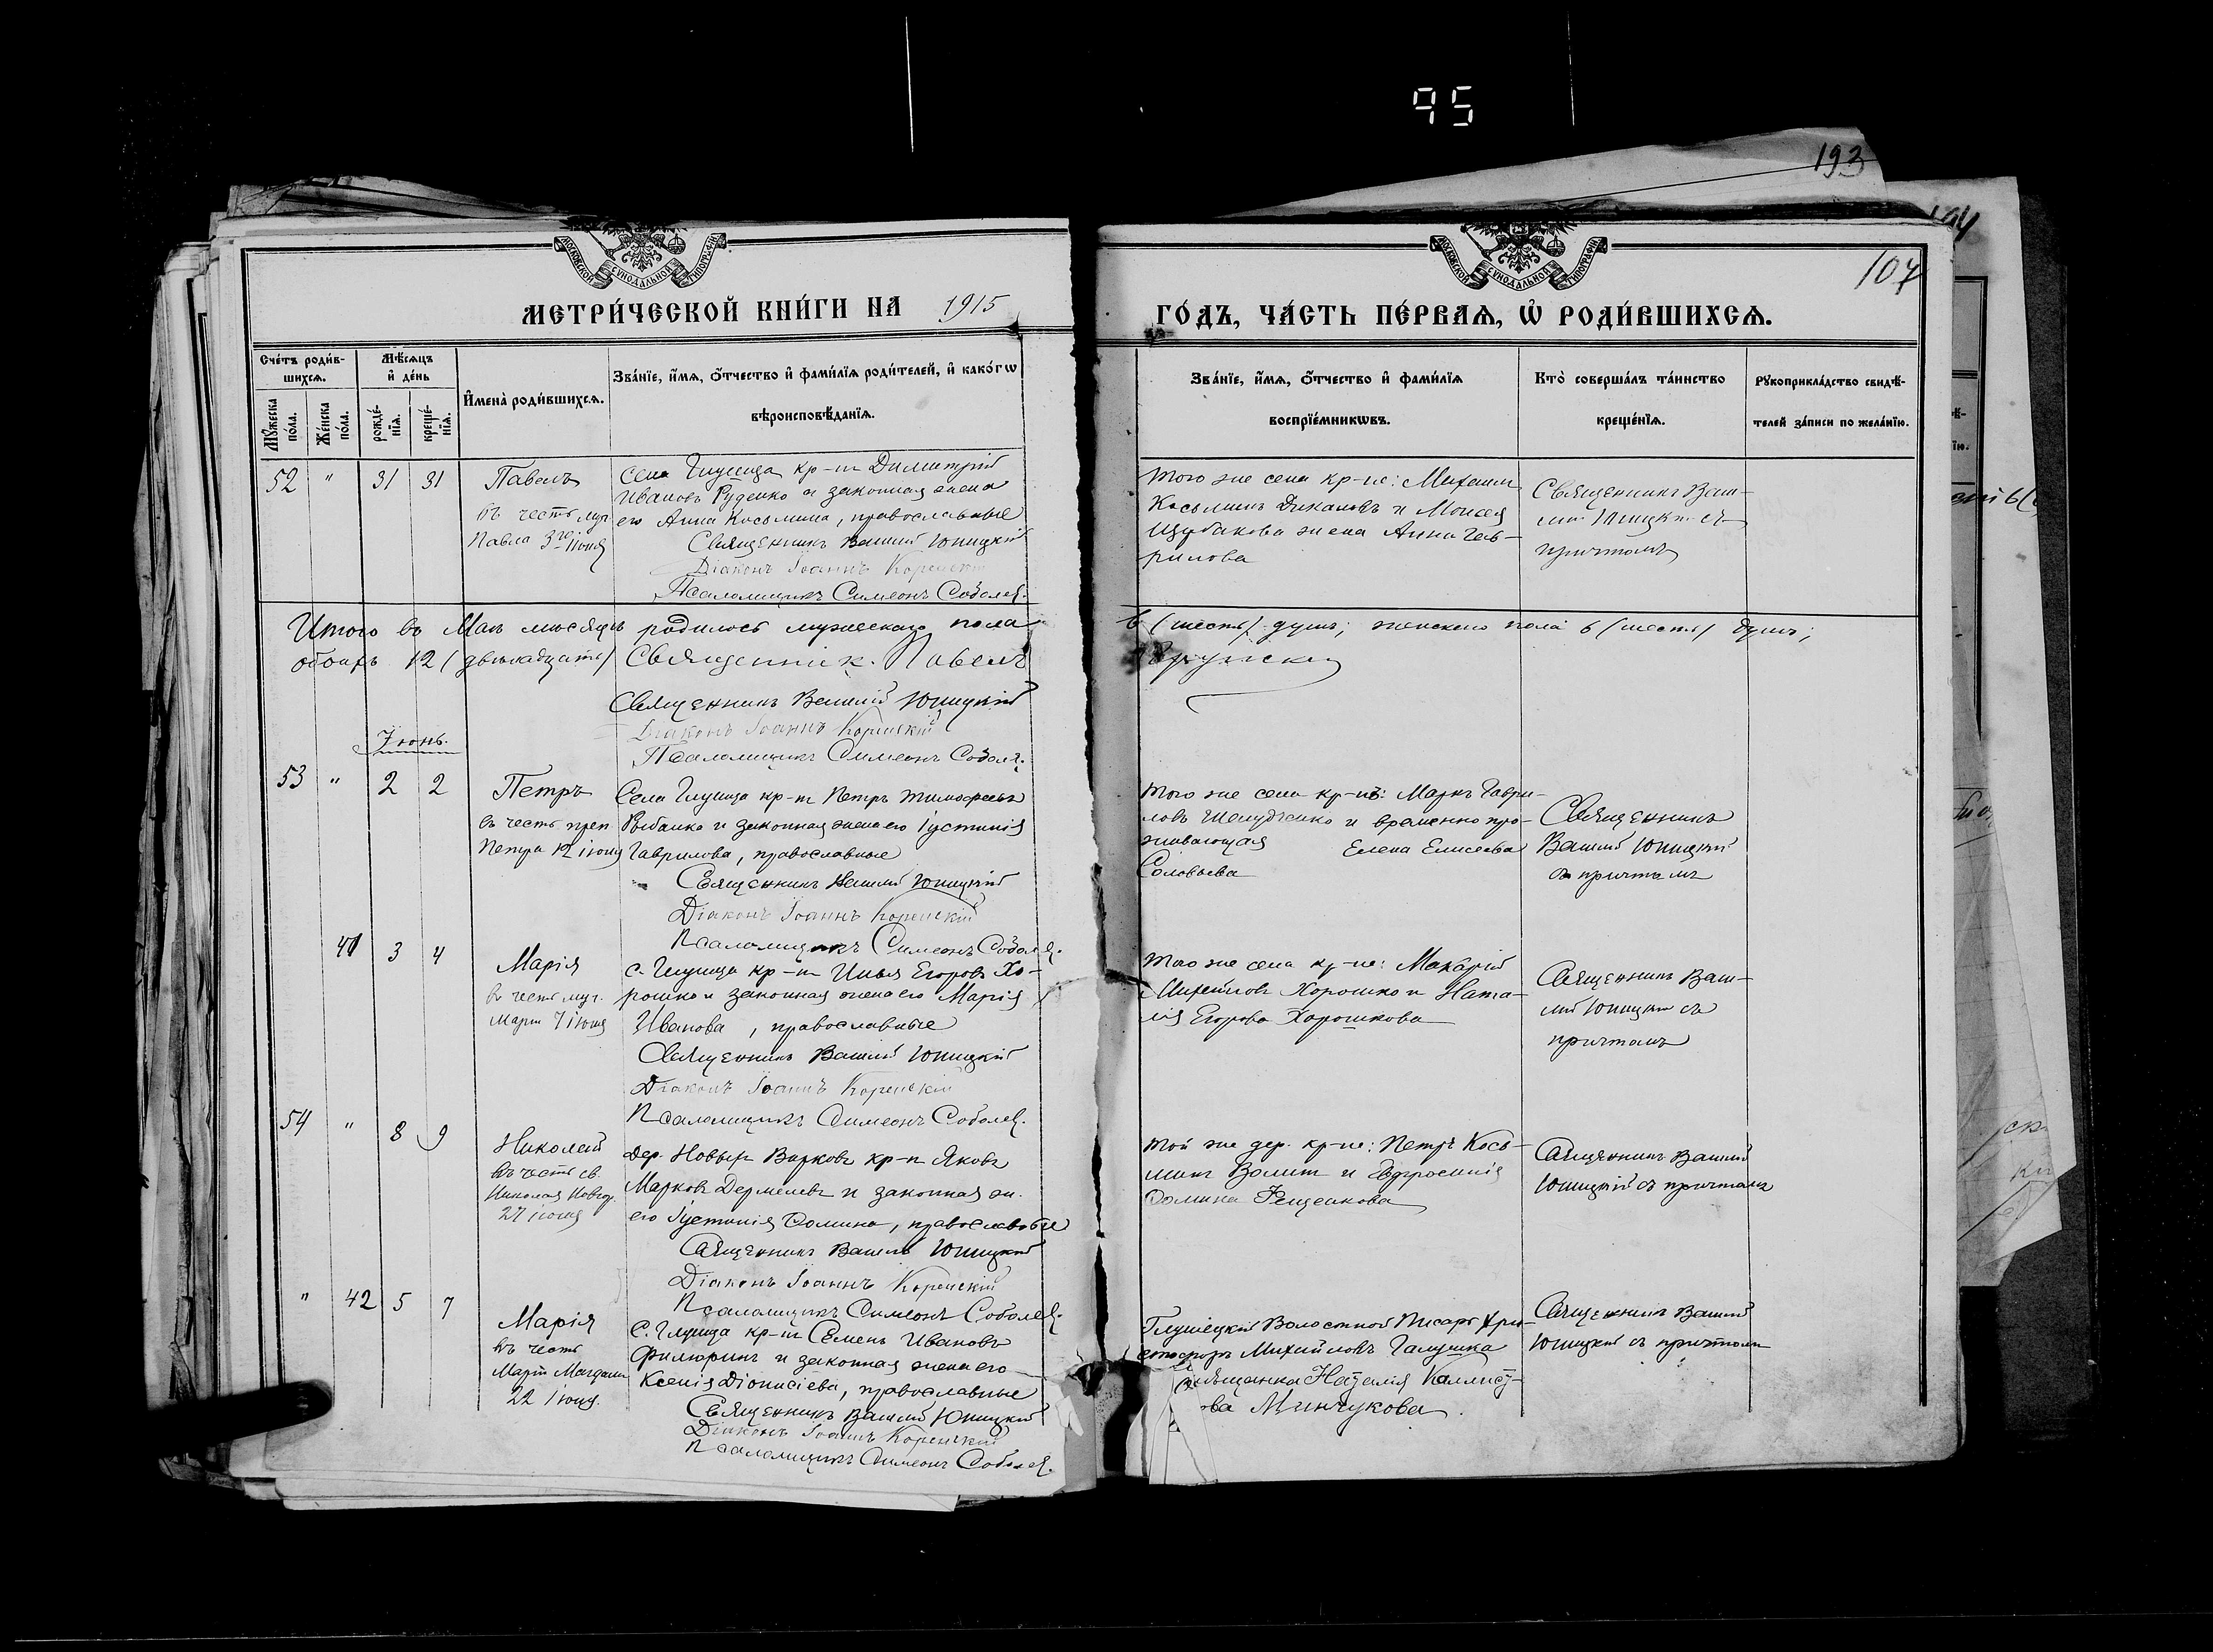 95
193
194
107
МОСКОВСКОЙ СѴНОДАЛЬНОЙ ТИПОГРАФІИ
МОСКОВСКОЙ СѴНОДАЛЬНОЙ ТИПОГРАФІИ
МЕТРИ́ЧЕСКОЙ КНИ́ГИ НА 1915
ГО́ДЪ, ЧА́СТЬ ПЕ́РВАѦ, Ѽ РОДИ́ВШИХСѦ.
Сче́тъ роди́в-
шихсѧ.
Мѣ́сѧцъ
и҆ де́нь
Мꙋ́жеска по́ла.
Же́нска по́ла.
рожде́-
нїѧ.
креще́-
нїѧ.
И҆мена̀ роди́вшихсѧ.
Зва́нїе, и҆́мѧ, ѻ҆́тчество и҆ фами́лїѧ роди́телей, и҆ како́гѡ
вѣроисповѣ́данїѧ.
Зва́нїе, и҆́мѧ, ѻ҆́тчество и҆ фами́лїѧ
воспрїе́мникѡвъ.
Кто̀ соверша́лъ та́инство
креще́нїѧ.
Рꙋкоприкла́дство свидѣ́-
телей за́писи по жела́нїю.
52 " 31 31
Павелъ
въ честь муч.
Павла 3го іюня
села Глушеца кр-нъ Димитрій
Ивановъ Руденко и законная жена
его Анна Косьмина, православные
Священникъ Василій Юницкій
Діаконъ Іоаннъ Коренскій
Псаломщикъ Симеонъ Соболев.
Того же села кр-не: Михаилъ
Косьминъ Дикаловъ и Моисея
жена Анна Гав-
рилова
Священникъ Васи-
лій Юницкій съ
причтомъ
Итого въ Маѣ мѣсяцѣ родилось мужескаго пола
6 (шесть) душъ; женскаго пола 6 (шесть) душъ;
обоихъ 12 (двѣнадцать) Священник. Павелъ
Священникъ Василій Юницкій
Діаконъ Іоаннъ Коренскій
Псаломщикъ Симеонъ Соболев.
Іюнь.
53 " 2 2
Петръ
въ честь преп.
Петра 12 іюня
Села Глушеца кр-нъ Петръ Тимофеевъ
Рыбалко и законная жена его Іустинія
Гаврилова, православные
Священникъ Василій Юницкій
Діаконъ Іоаннъ Коренскій
Псаломщикъ Симеонъ Соболев.
Того же села кр-нъ: Маркъ Гаври-
ловъ Шелудченко и временно про-
живающая Елена Елисеева
Соловьева
Священникъ
Василій Юницкій
съ причтомъ
41 3 4
Марія
въ честь муч.
Маріи 7 іюня
с. Глушеца кр-нъ Илья Егоровъ Хо-
рошко и законная жена его Марія
Иванова, православные
Священникъ Василій Юницкій
Діаконъ Іоаннъ Коренскій
Псаломщикъ Симеонъ Соболев.
Того же села кр-не: Макарій
Михайловъ Хорошко и Ната-
лія Егорова Хорошкова
Священникъ Васи-
лій Юницкій съ
причтомъ
54 " 8 9
Николай
въ честь св.
Николая Новгор.
27 іюля
дер. Новыхъ Вирковъ кр-нъ Яковъ
Марковъ и законная ж.
его Іустинія Фомина, православные
Священникъ Василій Юницкій
Діаконъ Іоаннъ Коренскій
Псаломщикъ Симеонъ Соболев.
той же дер. кр-не: Петръ Кось-
минъ и Евфросинія
Фомина
Священникъ Василій
Юницкій съ причтомъ
" 42 5 7
Марія
въ честь
Маріи Магдалин.
22 іюля.
С. Глушеца кр-нъ Семенъ Ивановъ
Филюринъ и законная жена его
Ксенія Діонисіева, православные
Священникъ Василій Юницкій
Діаконъ Іоаннъ Коренскій
Псаломщикъ Симеонъ Соболев.
Глушецкій Волостной Писарь Хри-
стофоръ Михайловъ Галушка
Наталія Каллист-
ова Минчукова.
Священникъ Василій
Юницкій съ причтомъ